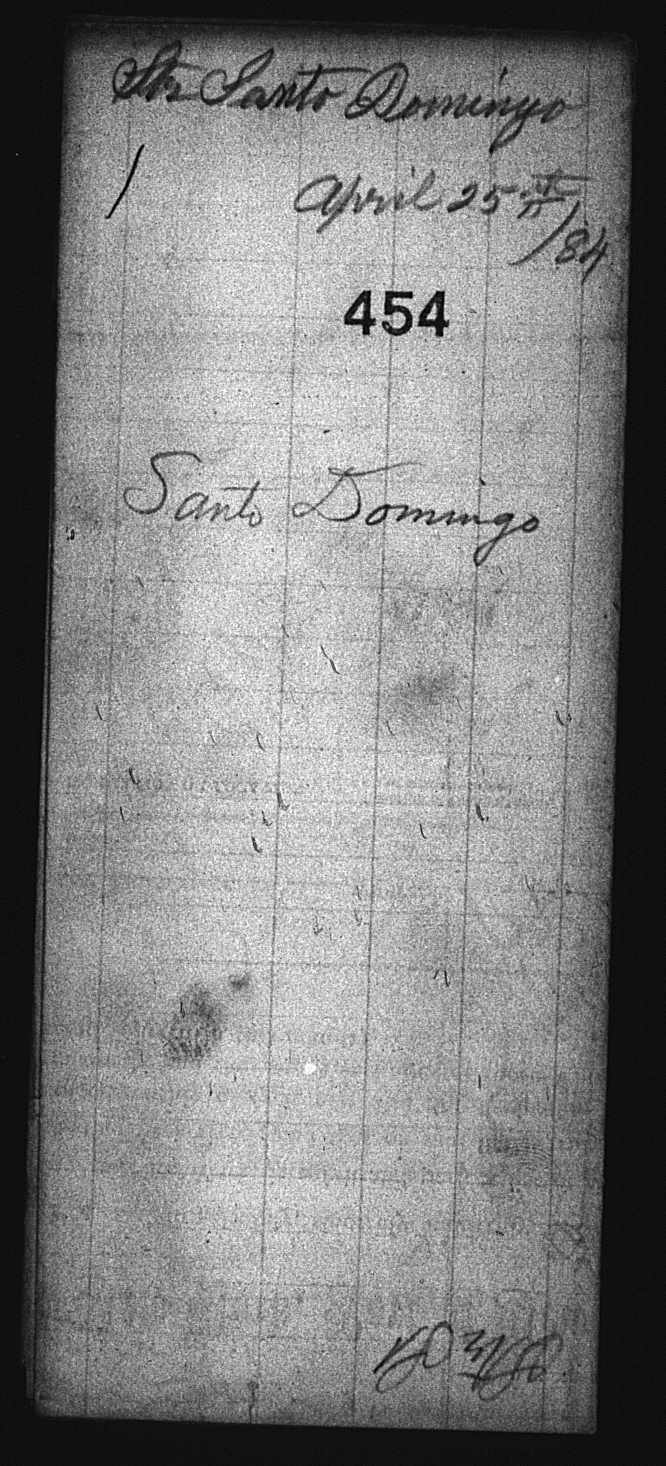 Str Santo Domingo
April 25th
/84
454
Santo Domingo